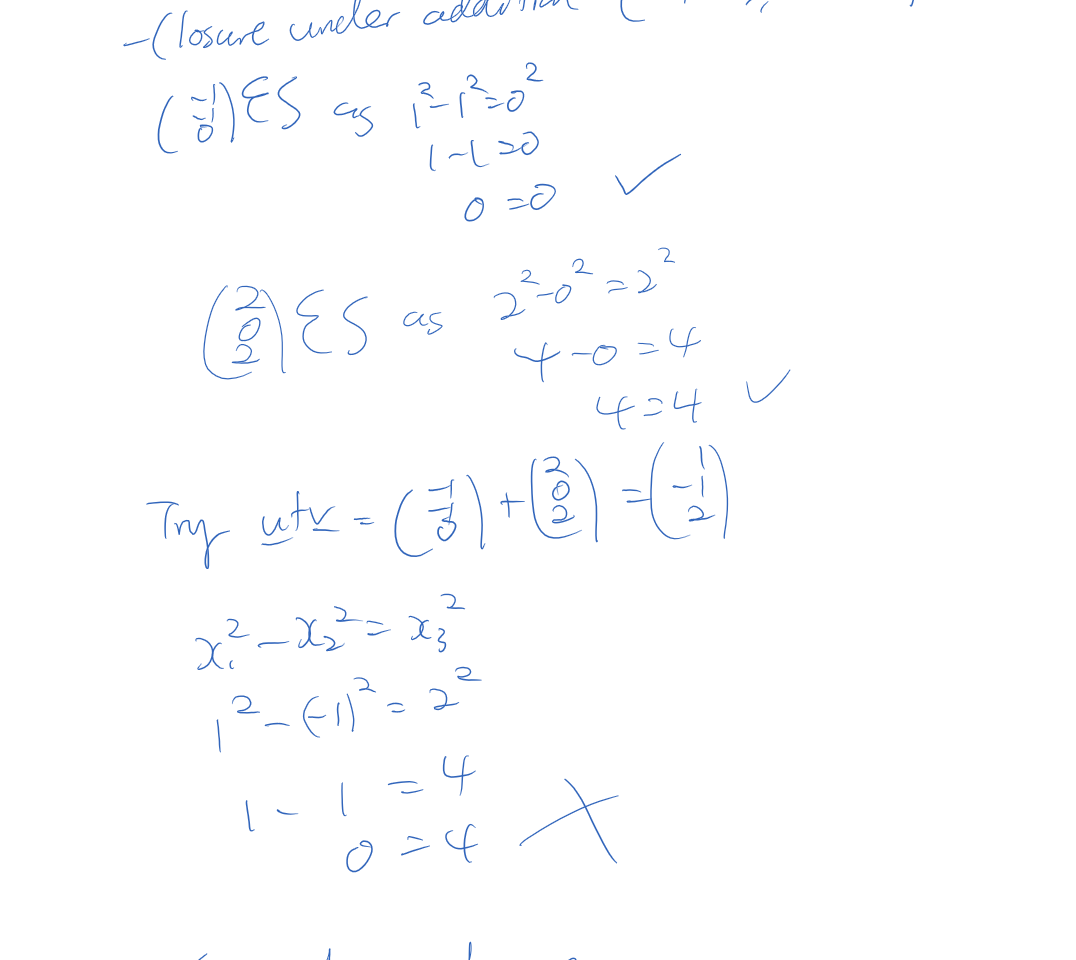 -Closure under addition (
(-1 -1 0) ∈ S as 1²-1²=0²
1-1=0
0=0 ✓
(2 0 2) ∈ S as 2²-0²=2²
4-0=4
4=4 ✓
Try u+v = (-1 -1 0) + (2 0 2) = (1 -1 2)
x₁²-x₂²=x₃²
1²-(-1)²=2²
1-1=4
0=4 ✗